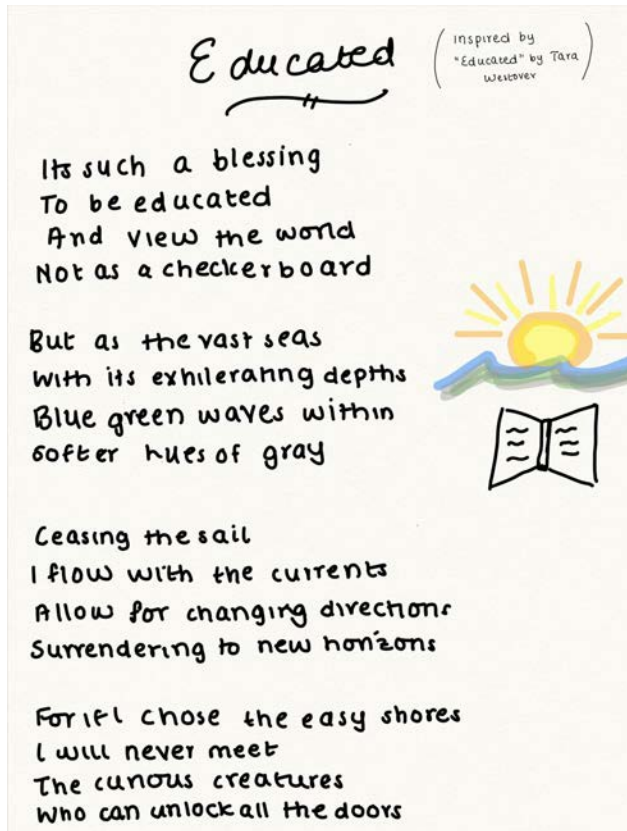 Educated
(Inspired by
"Educated" by Tara
Westover)
Its such a blessing
To be educated
And view the world
Not as a checkerboard
But as the vast seas
With its exhilerating depths
Blue green waves within
Softer hues of gray
Ceasing the sail
I flow with the currents
Allow for changing directions
Surrendering to new horizons
For if I chose the easy shores
I will never meet
The curious creatures
Who can unlock all the doors